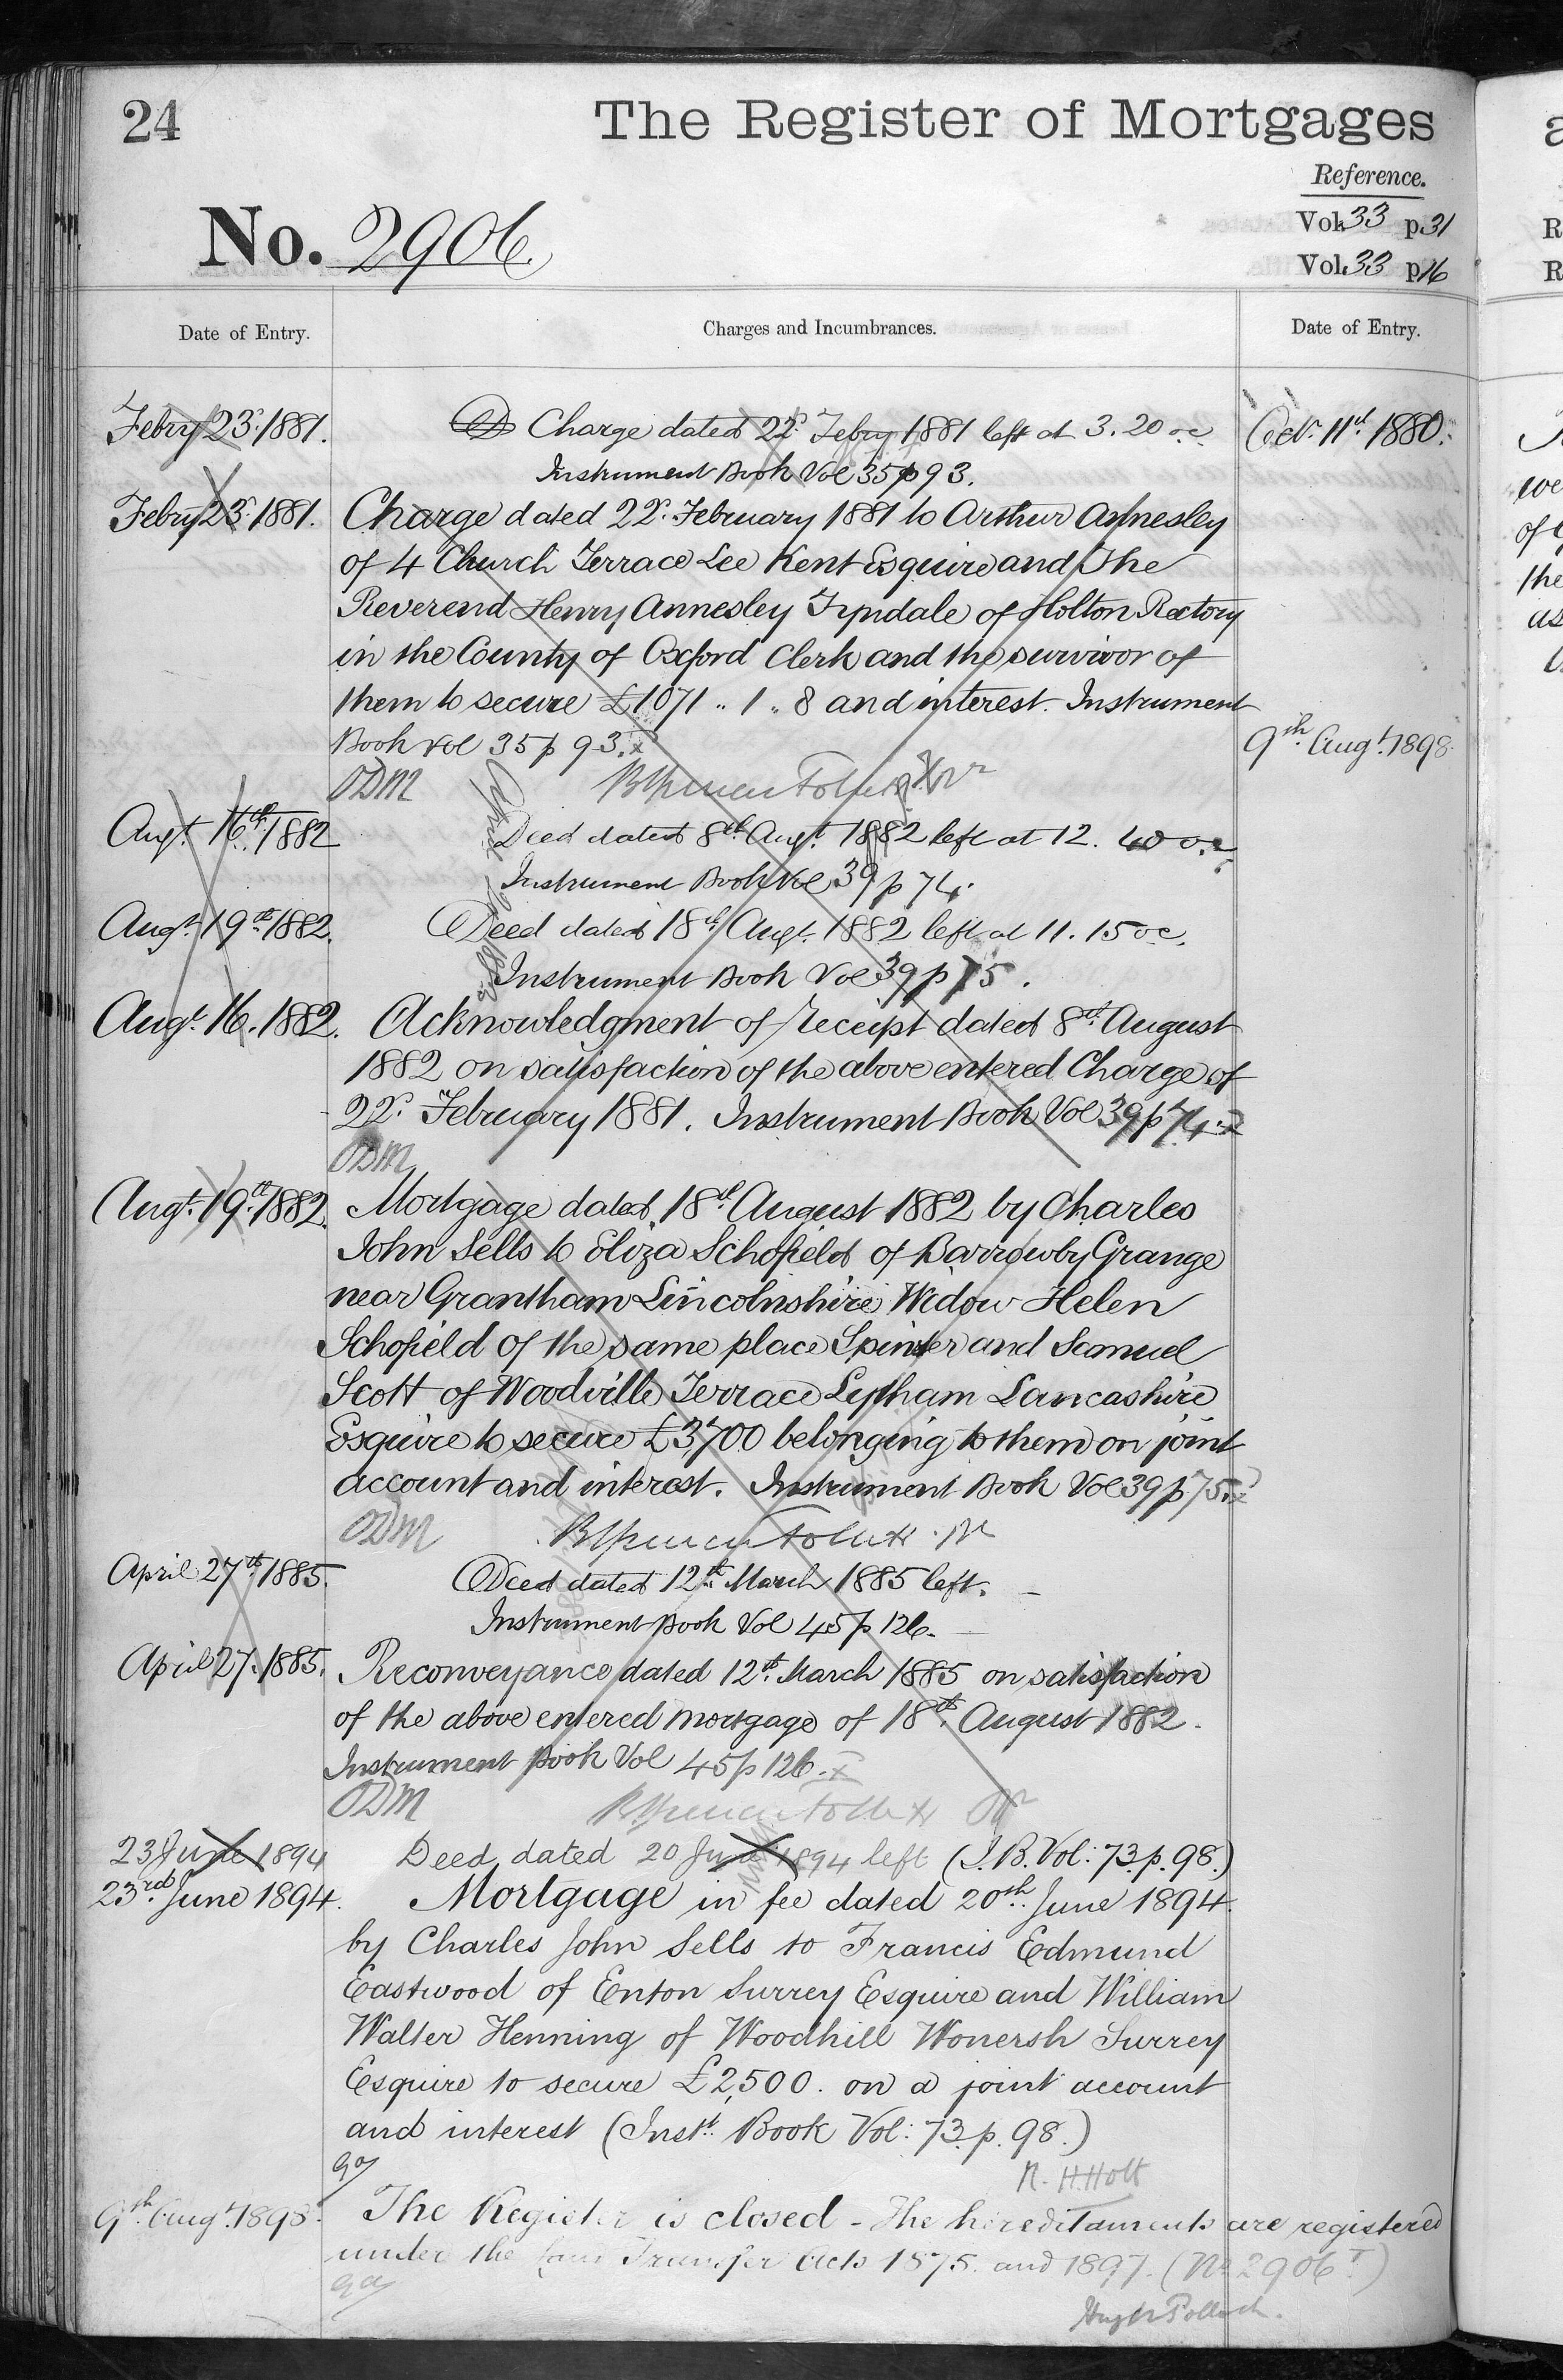 24
The Register of Mortgages
Reference.
No. 2906.
Vol. 33 p. 31
Vol. 33 p. 16
Date of Entry.
Charges and Incumbrances.
Date of Entry.
Febry 23d. 1881.
Charge dated 22d. Febry 1881 left at 3.20 oc
Octr. 11th 1880.
Instrument Book Vol 35 p 93.
Febry 23d. 1881.
Charge dated 22d. February 1881 to Arthur Annesley
of 4 Church Terrace Lee Kent Esquire and The
Reverend Henry Annesley Tyndale of Holton Rectory
in the County of Oxford Clerk and the survivor of
them to secure £1071 .. 1 .. 8 and interest. Instrument
Book Vol 35 p 93. x
9th. Augt. 1898.
ODM
Augt. 16th. 1882
Deed dated 8th Augt. 1882 left at 12. 40 oc
Instrument Book Vol 39 p 74.
Augt. 19th. 1882.
Deed dated 18th. Augt. 1882 left at 11. 15 oc.
Instrument Book Vol 39 p 75.
Augt. 16. 1882.
Acknowledgment of receipt dated 8th. August
1882 on satisfaction of the above entered Charge of
22d. February 1881. Instrument Book Vol 39 p 74. x
ODM
Augt. 19th. 1882.
Mortgage dated 18th August 1882 by Charles
John Sells to Eliza Schofield of Barrowby Grange
near Grantham Lincolnshire Widow Helen
Schofield of the same place Spinster and Samuel
Scott of Woodville Terrace Lytham Lancashire
Esquire to secure £3,700 belonging to them on joint
account and interest. Instrument Book Vol 39 p 75. x
ODM
April 27th 1885.
Deed dated 12th. March 1885 left.
Instrument Book Vol 45 p 126.
April 27. 1885.
Reconveyance dated 12th. March 1885 on satisfaction
of the above entered mortgage of 18th. August 1882.
Instrument Book Vol 45 p 126. x
ODM
23 June 1894
Deed dated 20 June 1894 left (I.B. Vol: 73. p. 98.)
23rd. June 1894.
Mortgage in fee dated 20th. June 1894.
by Charles John Sells to Francis Edmund
Eastwood of Enton Surrey Esquire and William
Walter Henning of Woodhill Wonersh Surrey
Esquire to secure £2,500. on a joint account
and interest (Inst. Book Vol: 73. p. 98.)
R. H. Holt
9th. Augt. 1898.
The Register is closed - The hereditaments are registered
under the Land Transfer Acts 1875. and 1897. (No. 2906 I)
Hugh Pollock.